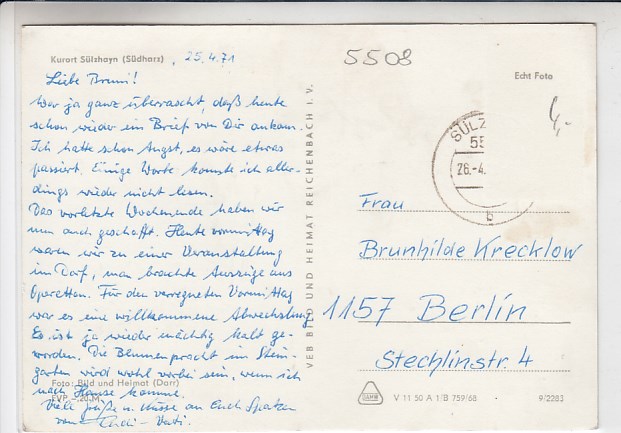 Kurort Sülzhayn (Südharz) , 25.4.71
Liebe Bruni!
War ja ganz überrascht, daß heute
schon wieder ein Brief von Dir ankam.
Ich hatte schon Angst, es wäre etwas
passiert. Einige Worte konnte ich aller-
dings wieder nicht lesen.
Das vorletzte Wochenende haben wir
nun auch geschafft. Heute vormittag
waren wir zu einer Veranstaltung
im Dorf, man brachte Auszüge aus
Operetten. Für den verregneten Vormittag
war es eine willkommene Abwechslung.
Es ist ja wieder mächtig kalt ge-
worden. Die Blumenpracht im Stein-
garten wird wohl vorbei sein, wenn ich
nach Hause komme.
Viele Grüße u. Küsse an Euch Spatzen
von Vati
Foto: Bild und Heimat (Dorr)
EVP -.20 M
VEB BILD UND HEIMAT REICHENBACH I. V.
5508
Echt Foto
4,-
SÜLZ
55
26.-4.
b
Frau
Brunhilde Krecklow
1157 Berlin
Stechlinstr. 4
V 11 50 A 1/B 759/68 · 9/2283